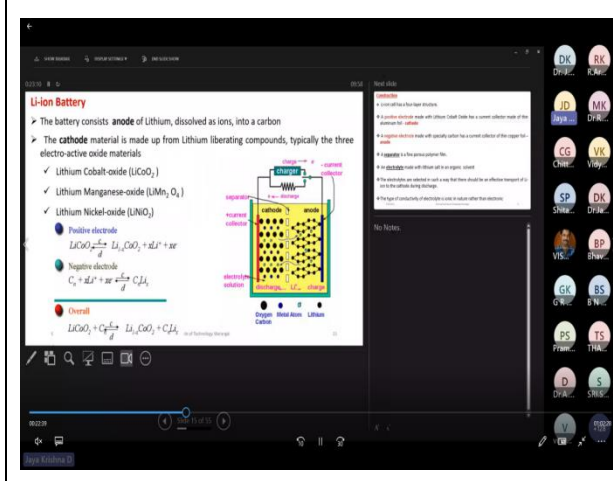 SHOW TASKBAR DISPLAY SETTINGS ▾ END SLIDE SHOW
0:23:10
09:58
Next slide
Li-ion Battery
➤ The battery consists anode of Lithium, dissolved as ions, into a carbon
➤ The cathode material is made up from Lithium liberating compounds, typically the three
electro-active oxide materials
✓ Lithium Cobalt-oxide (LiCoO2)
✓ Lithium Manganese-oxide (LiMn2 O4)
✓ Lithium Nickel-oxide (LiNiO2)
Positive electrode
Negative electrode
Overall
charge
charger
- current
collector
discharge
separator
cathode anode
+current
collector
electrolyte
solution
discharge charge
Oxygen Metal Atom Lithium
Carbon
Construction
A Li-ion cell has a four-layer structure.
A positive electrode made with Lithium Cobalt Oxide has a current collector made of thin
aluminum foil - cathode
A negative electrode made with specialty carbon has a current collector of thin copper foil -
anode
A separator is a fine porous polymer film.
An electrolyte made with lithium salt in an organic solvent
The electrolytes are selected in such a way that there should be an effective transport of Li-
ion to the cathode during discharge.
The type of conductivity of electrolyte is ionic in nature rather than electronic
No Notes.
Slide 15 of 55
00:22:39
10 30
Jaya Krishna D
DK RK
Dr. J... R.Ar...
JD MK
Jaya ... Dr R...
CG VK
Chitt... Vidy...
SP DK
Shita... Dr.Ja...
BP
VIS... Bhav...
GK BS
G R... B N...
PS TS
Pram... THA...
D S
Dr.A... SRI S...
V